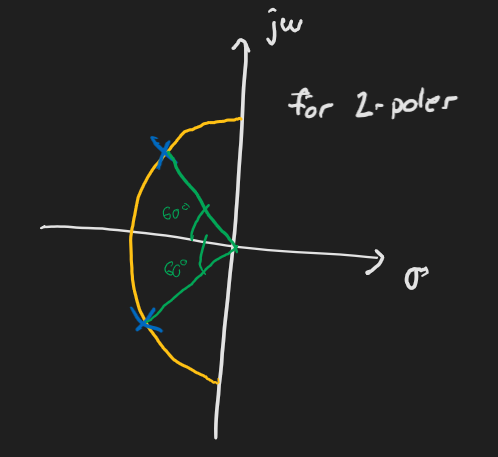 jω
for 2-poler
60°
60°
σ